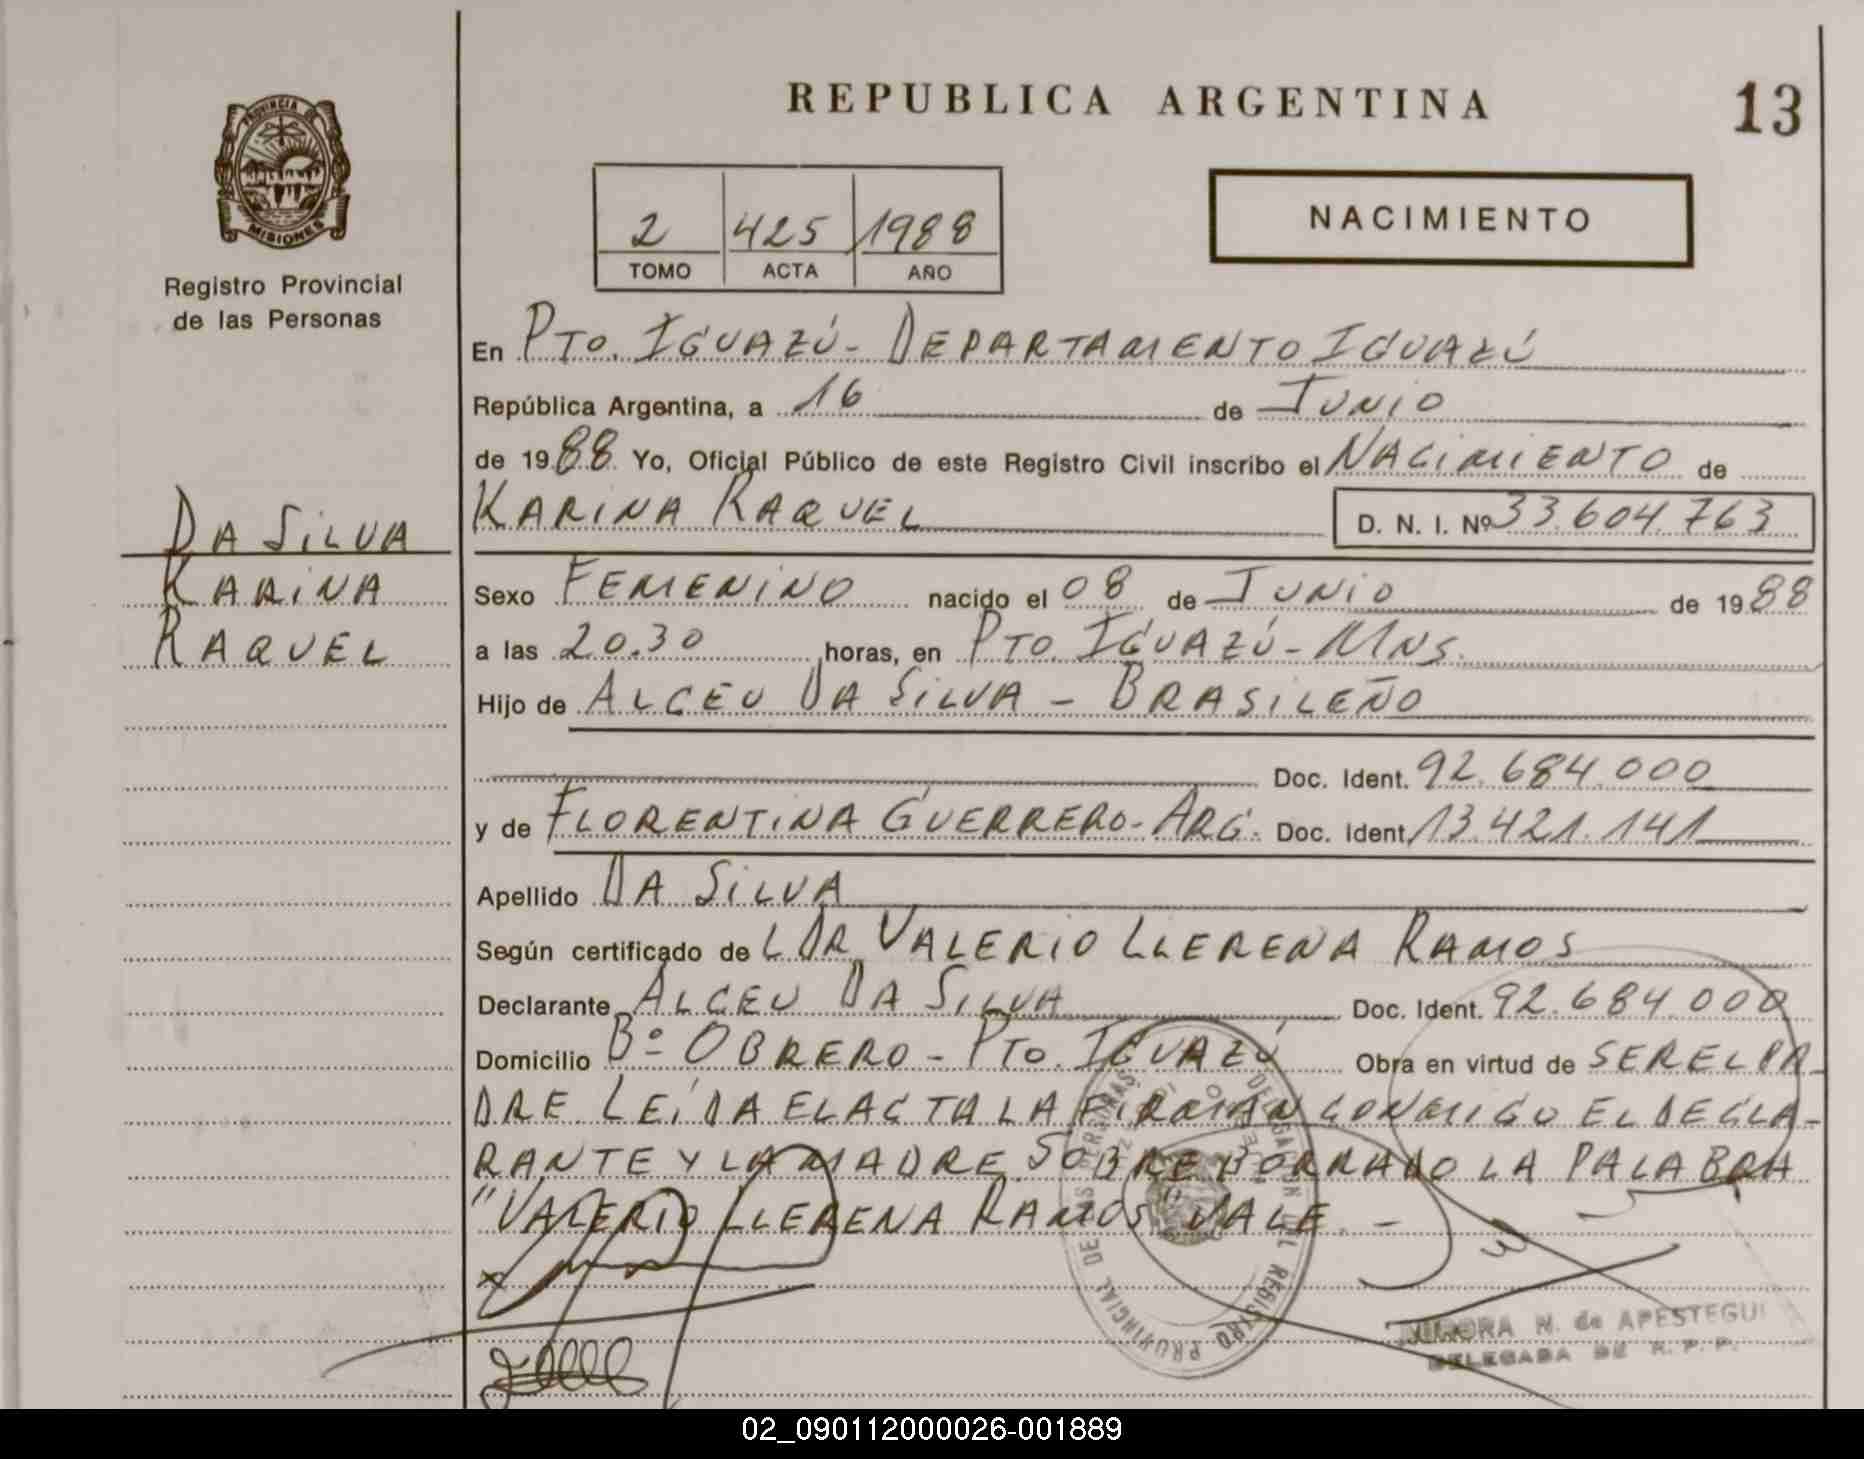 REPUBLICA ARGENTINA
13
PROVINCIA DE
MISIONES
Registro Provincial
de las Personas
2 425 1988
TOMO ACTA AÑO
NACIMIENTO
En PTO. IGUAZÚ - DEPARTAMENTO IGUAZÚ
República Argentina, a 16 de JUNIO
de 1988 Yo, Oficial Público de este Registro Civil inscribo el NACIMIENTO de
KARINA RAQUEL D. N. I. Nº 33.604.763
DA SILVA
KARINA
RAQUEL
Sexo FEMENINO nacido el 08 de JUNIO de 1988
a las 20.30 horas, en PTO. IGUAZÚ - MNS.
Hijo de ALCEU DA SILVA - BRASILEÑO
Doc. Ident. 92.684.000
y de FLORENTINA GUERRERO - ARG. Doc. Ident. 13.421.141
Apellido DA SILVA
Según certificado de L DR VALERIO LLERENA RAMOS
Declarante ALCEU DA SILVA Doc. Ident. 92.684.000
Domicilio Bº OBRERO - PTO. IGUAZÚ Obra en virtud de SER EL PA-
DRE. LEÍDA EL ACTA LA FIRMAN CONMIGO EL DECLA-
RANTE Y LA MADRE. SOBRE BORRADO LA PALABRA
"VALERIO LLERENA RAMOS" VALE. -
DELEGACION DEL REGISTRO PROVINCIAL DE LAS PERSONAS
N. de APESTEGUI
DELEGADA DE R. P. P.
02_090112000026-001889